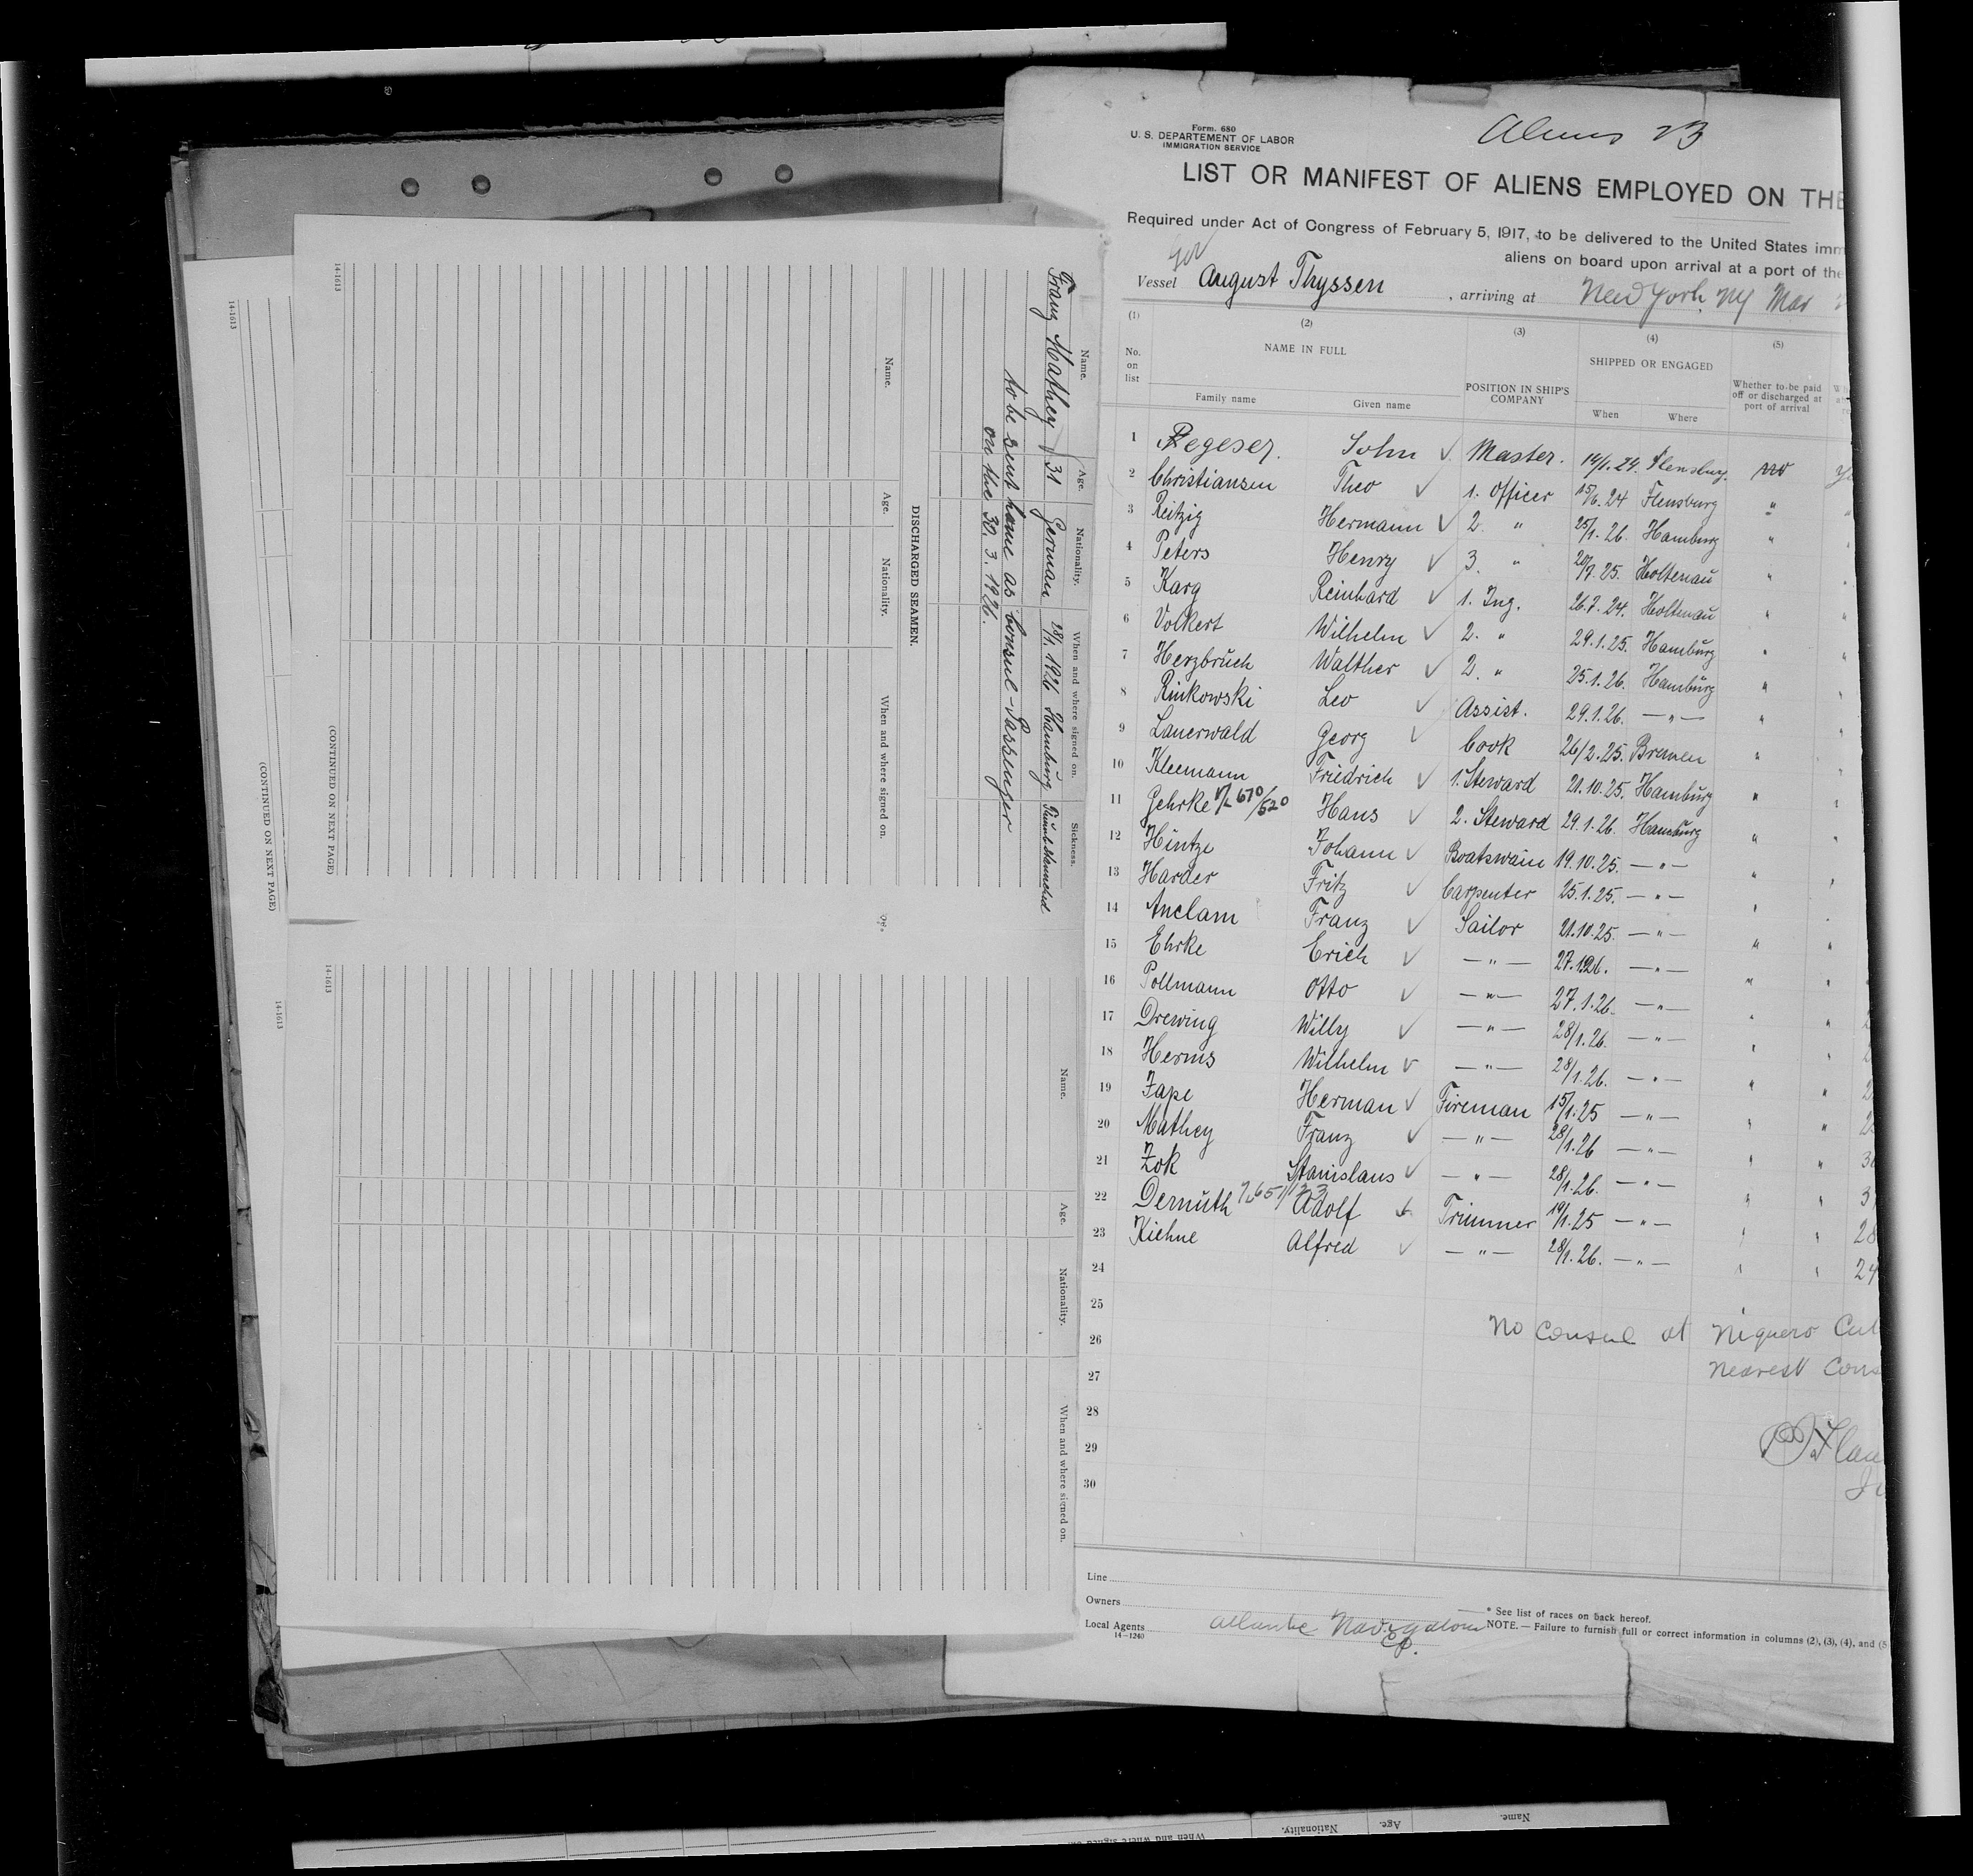 Form. 680
U. S. DEPARTEMENT OF LABOR
IMMIGRATION SERVICE
Aliens 23
LIST OR MANIFEST OF ALIENS EMPLOYED ON THE
Required under Act of Congress of February 5, 1917, to be delivered to the United States imm
aliens on board upon arrival at a port of the
Vessel August Thyssen , arriving at New York, NY Mar
(1) (2) (3) (4) (5)
No. on list NAME IN FULL POSITION IN SHIP'S COMPANY SHIPPED OR ENGAGED Whether to be paid off or discharged at port of arrival
Family name Given name When Where
1 John Master. 14/1.24. Flensburg. no
2 Christiansen Theo 1. Officer 15/6.24 Flensburg "
3 Reitzig Hermann 2. " 25/1.26. Hamburg "
4 Peters Henry 3. " 20/7.25. Holtenau "
5 Karg Reinhard 1. Ing. 26.7.24. Holtenau "
6 Volkert Wilhelm 2. " 29.1.25. Hamburg "
7 Herzbruch Walther 2. " 25.1.26. Hamburg "
8 Rinkowski Leo Assist. 29.1.26. —"— "
9 Lauerwald Georg Cook 26/2.25. Bremen "
10 Kleemann Friedrich 1. Steward 21.10.25. Hamburg "
11 Gehrke 670/520 Hans 2. Steward 29.1.26. Hamburg "
12 Hintze Johann Boatswain 19.10.25. —"— "
13 Harder Fritz Carpenter 25.1.25. —"— "
14 Anclam Franz Sailor 21.10.25. —"— "
15 Ehrke Erich —"— 27.1.26. —"— "
16 Pollmann Otto —"— 27.1.26. —"— "
17 Drewing Willy —"— 28/1.26. —"— "
18 Herms Wilhelm —"— 28/1.26. —"— "
19 Zape Herman Fireman 15/1.25 —"— "
20 Mathey Franz —"— 28/1.26 —"— "
21 Zok Stanislaus —"— 28/1.26. —"— "
22 Demuth Adolf Trimmer 19/1.25 —"— " 28
23 Kiehne Alfred —"— 28/1.26. —"— " 24
24
25
26 No Consul at Niquero
27 Nearest
28
29
30
Line
Owners
Local Agents Atlantic Navigation Co.
14—1240
* See list of races on back hereof.
NOTE. — Failure to furnish full or correct information in columns (2), (3), (4), and (5
Name. Age. Nationality. When and where signed on. Sickness.
Franz Mathey 31 German 28/1.1926 Hamburg
to be sent home as Consul-Passenger
on the 30.3.1926.
DISCHARGED SEAMEN.
Name. Age. Nationality. When and where signed on.
(CONTINUED ON NEXT PAGE)
14-1613
Name. Age. Nationality. When and where signed on.
14-1613
(CONTINUED ON NEXT PAGE)
14-1613
14-1613
Name. Age. Nationality. When and where signed on.